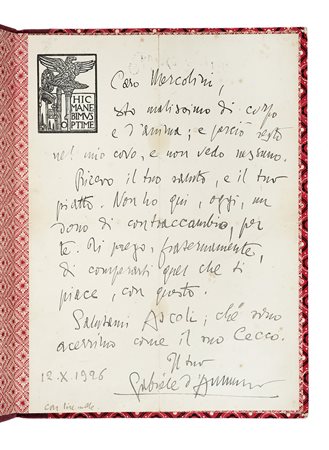 HIC
MANE
BIMVS
OPTIME
Caro Mercolini,
sto malissimo di corpo
e d'anima; e perciò resto
nel mio covo, e non vedo nessuno.
Ricevo il tuo saluto, e il tuo
piatto. Non ho qui, oggi, un
dono di contraccambio, per
te. Ti prego, fraternamente,
di comperarti quel che ti
piace, con questo.
Salutami Ascoli, ché sono
acerrimo come il suo Cecco.
Il tuo
Gabriele d'Annunzio
12.X.1926
con lire mille